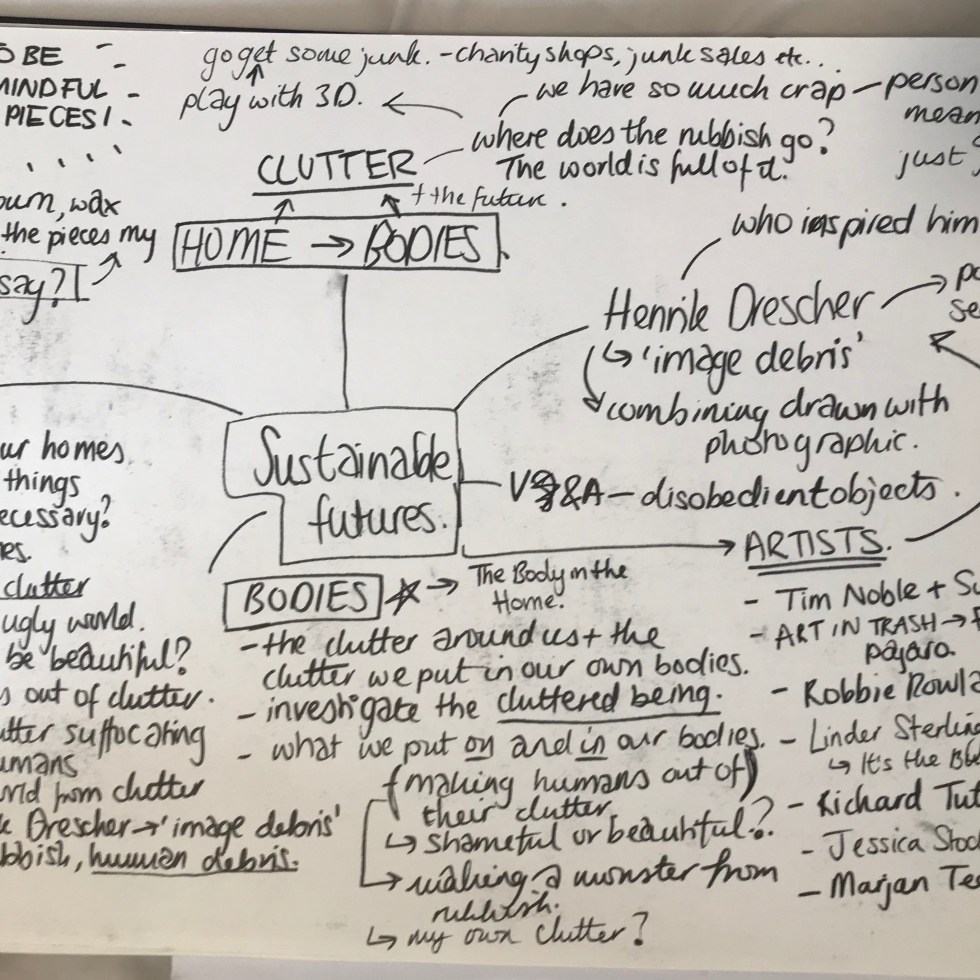 O BE
MINDFUL
PIECES!
go get some junk. - charity shops, junk sales etc...
play with 3D.
we have so much crap - person
mean
just
where does the rubbish go?
The world is full of it.
CLUTTER
+ the future.
HOME → BODIES
burn, wax
the pieces my
say?
who inspired him
Henrik Drescher → po
se
↳ 'image debris'
combining drawn with
photographic.
Sustainable
futures.
V&A - disobedient objects.
→ ARTISTS.
ur homes
things
ecessary?
es.
clutter
ugly world.
be beautiful?
s out of clutter.
utter suffocating
umans
rld from clutter
k Drescher → 'image debris'
bbish, human debris.
BODIES → The Body in the
Home.
- the clutter around us + the
clutter we put in our own bodies.
- investigate the cluttered being.
- what we put on and in our bodies.
(making humans out of)
their clutter
↳ shameful or beautiful?
→ making a monster from
rubbish.
↳ my own clutter?
- Tim Noble + Su
- ART IN TRASH →
pájaro.
- Robbie Rowla
- Linder Sterling
↳ It's the Blu
- Richard Tut
- Jessica Stoc
- Marjan Te